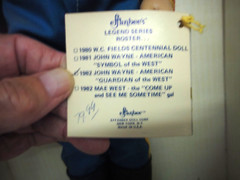 effanbee's
LEGEND SERIES
ROSTER...
1980 W.C. FIELDS CENTENNIAL DOLL
1981 JOHN WAYNE - AMERICAN
"SYMBOL of the WEST"
1982 JOHN WAYNE - AMERICAN
"GUARDIAN of the WEST"
1982 MAE WEST - the "COME UP
and SEE ME SOMETIME" gal
effanbee
EFFANBEE DOLL CORP.
NEW YORK, N.Y.
MADE IN U.S.A.